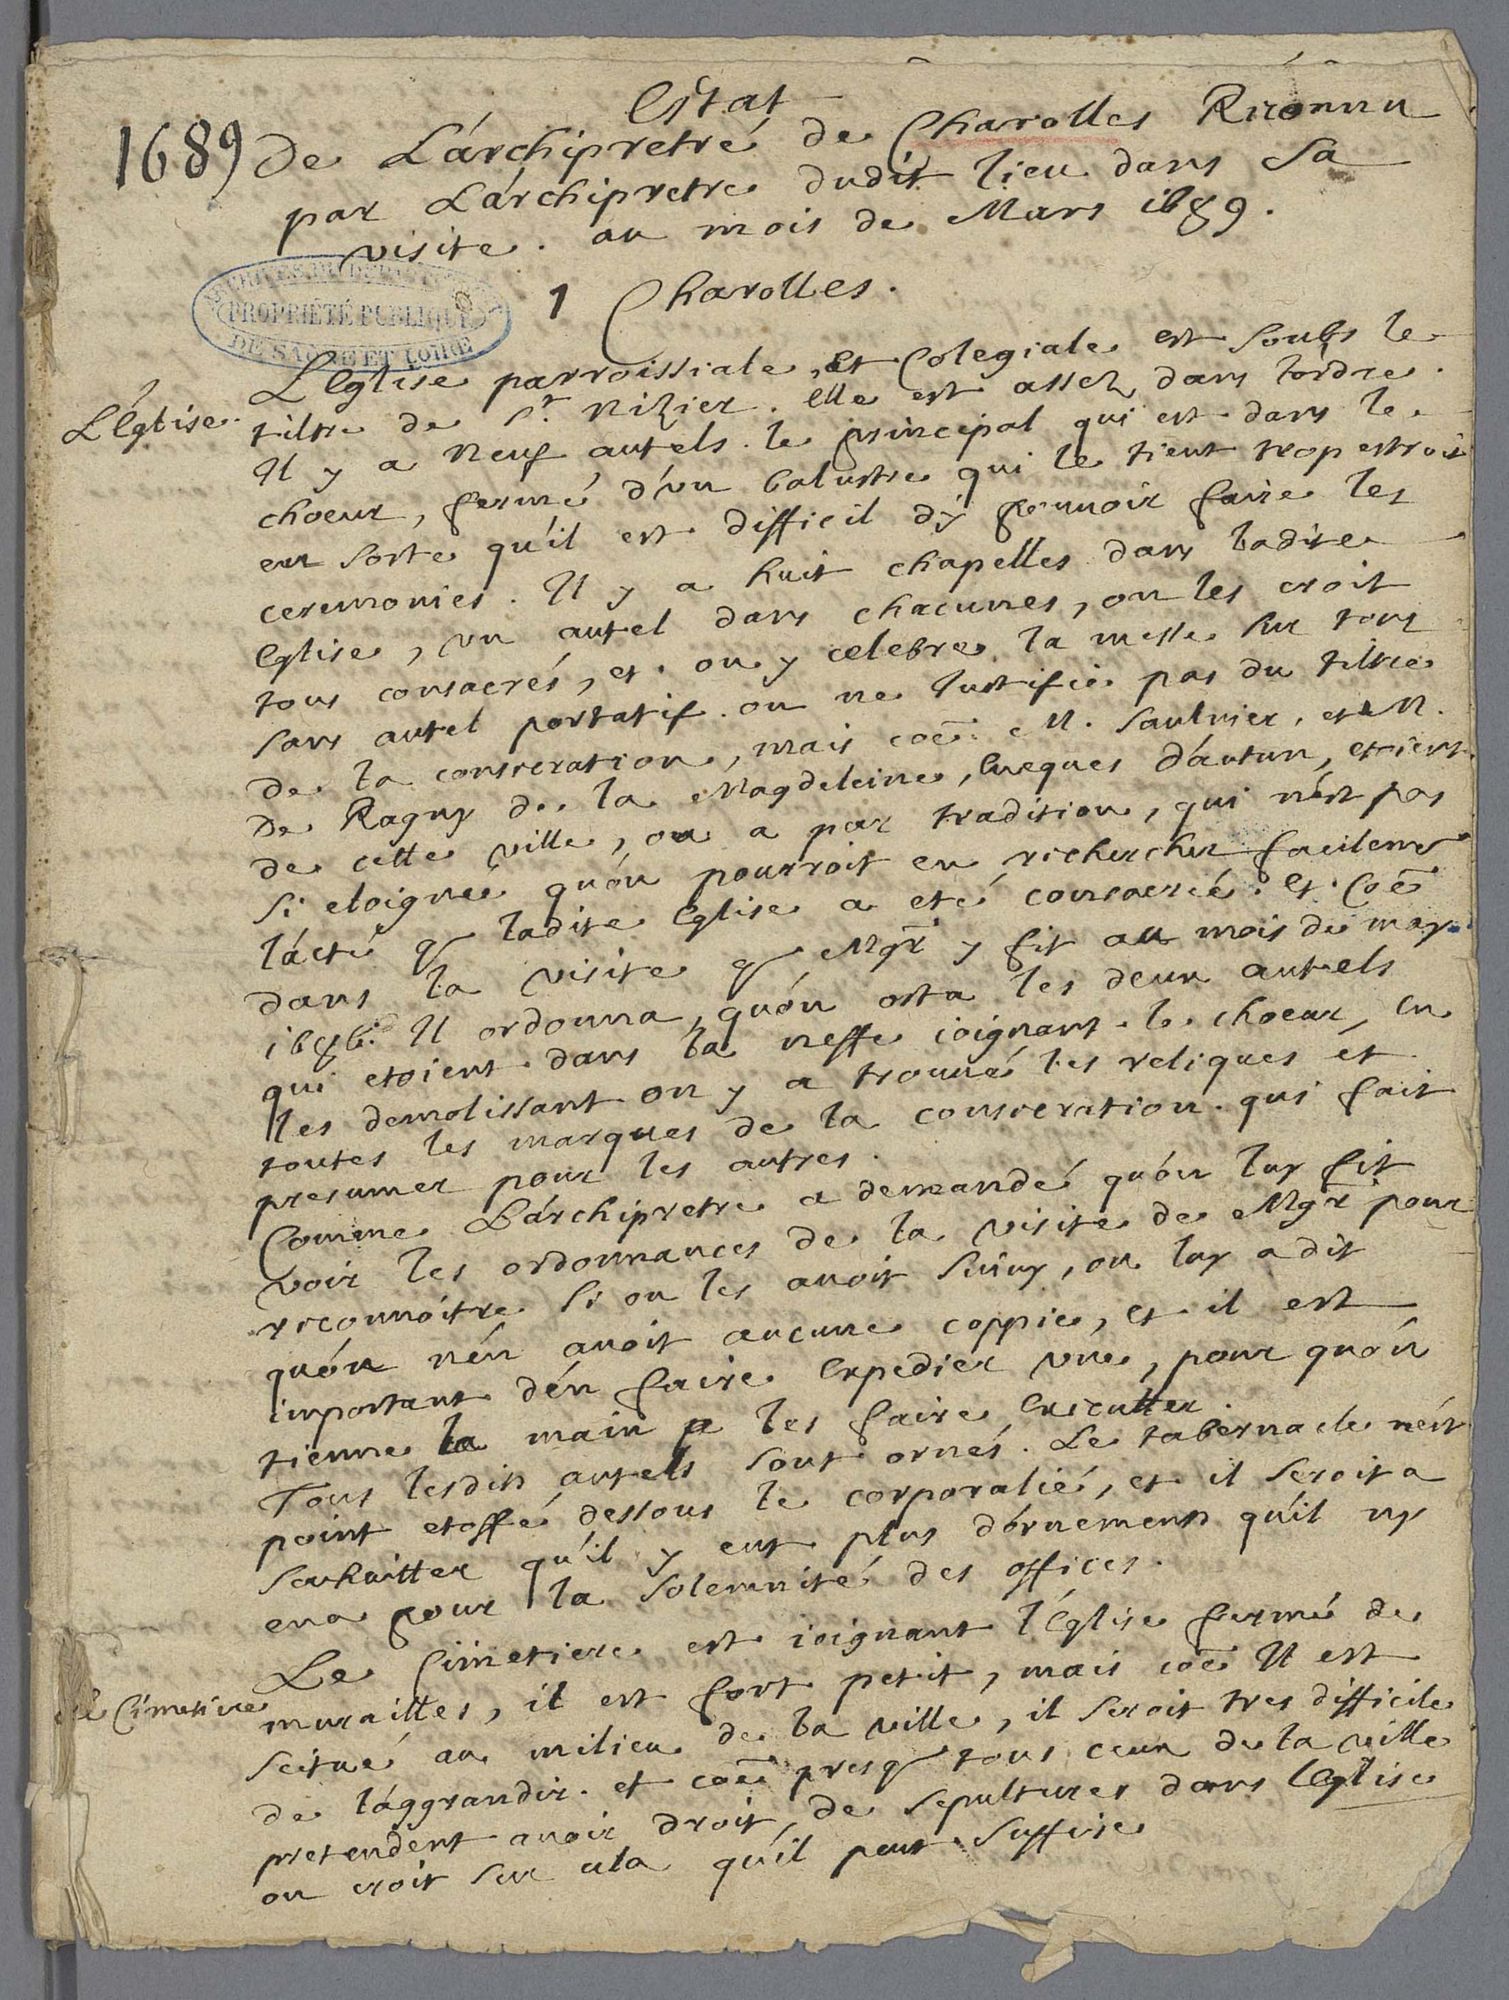 1689
Estat
De L'archipretré de Charolles Reconnu
par L'archipretre dudit lieu dans sa
visite. au mois de Mars 1689.
PROPRIÉTÉ PUBLIQUE
DE SAÔNE ET LOIRE
1 Charolles.
L'Eglise.
L'Eglise parroissiale, et Colegiale est soubs le
tiltre de St Nizier. elle est assez dans l'ordre.
Il y a neuf autels. le principal qui est dans le
choeur, fermé d'un balustre qui le tient trop estroit
en sorte qu'il est difficil d'y pouuoir faire les
ceremonies. Il y a huit chapelles dans ladite
Eglise, un autel dans chacunes, on les croit
tous consacrés, et on y celebre la messe sur tous
sans autel portatif. on ne Iustifie pas du tiltre
de la consecration, mais coe M. Saulnier, et M.
De Ragny de la Magdeleine, Eueques d'autun, etoient
de cette ville, on a par tradition, qui n'est pas
si eloigneé qu'on pourroit en rechercher facilemt
l'acte q ladite Eglise a eté consacreé. et Coe
dans la visite q Mgr y fit au mois de may
1686. Il ordonna, qu'on osta les deux autels
qui etoient dans la neffe ioignant le choeur, en
les demolissant on y a trouué les reliques et
toutes les marques de la consecration. qui fait
presumer pour les autres.
Comme L'archipretre a demandé qu'on luy fit
voir les ordonnances de la visite de Mgr pour
reconnoitre si on les auoit suiuy, on luy a dit
qu'on n'en auoit aucune coppie, et il est
important d'en faire Expedier vne, pour qu'on
tienne la main a les faire Executter.
Tous lesdits autels sont ornés. Le tabernacle n'est
point etoffé dessous le corporalié, et il seroit a
souhaitter qu'il y eut plus d'ornements qu'il ny
en a pour la solemnité des offices.
Le Cimetiere
Le Cimetiere est ioignant l'Eglise fermé de
murailles, il est fort petit, mais coe Il est
scitué au milieu de la ville, il seroit tres difficile
de l'aggrandir. et coe presq tous ceux de la ville
pretendent auoir droit, de sepultures dans l'Eglise
on croit sur cela qu'il peut suffire